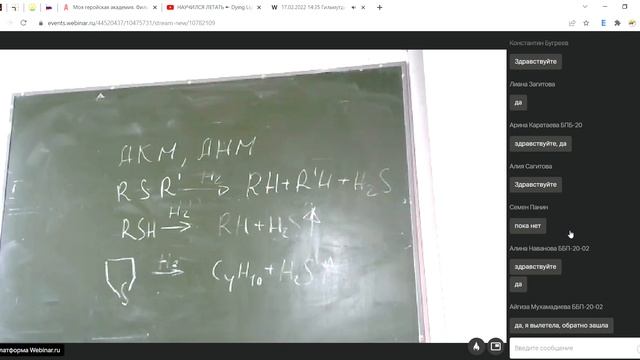 Моя геройская академия. Фил
НАУЧИЛСЯ ЛЕТАТЬ ➨ Dying Li
17.02.2022 14:35 Гильмутд
events.webinar.ru/44520437/10475731/stream-new/10782109
АКМ, АНМ
R S R' H₂→ RH + R'H + H₂S
RSH H₂→ RH + H₂S↑
S H₂→ C₄H₁₀ + H₂S↑
Константин Бугреев
Здравствуйте
Лиана Загитова
да
Арина Каратаева БПБ-20
здравствуйте, да
Алия Сагитова
Здравствуйте
Семен Панин
пока нет
Алина Наванова ББП-20-02
здравствуйте
да
Айгиза Мухамадиева ББП-20-02
да, я вылетела, обратно зашла
Введите сообщение
латформа Webinar.ru